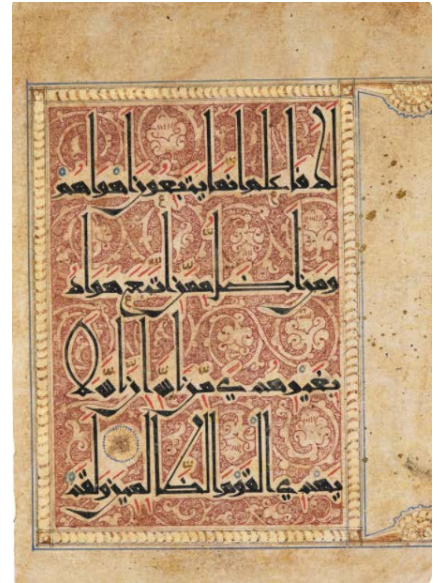 لك فاعلم انما يتبعون اهواهم
ومن اضل ممن اتبع هواه
بغير هدى من الله ان الله لا
يهدي القوم الظالمين ولقد